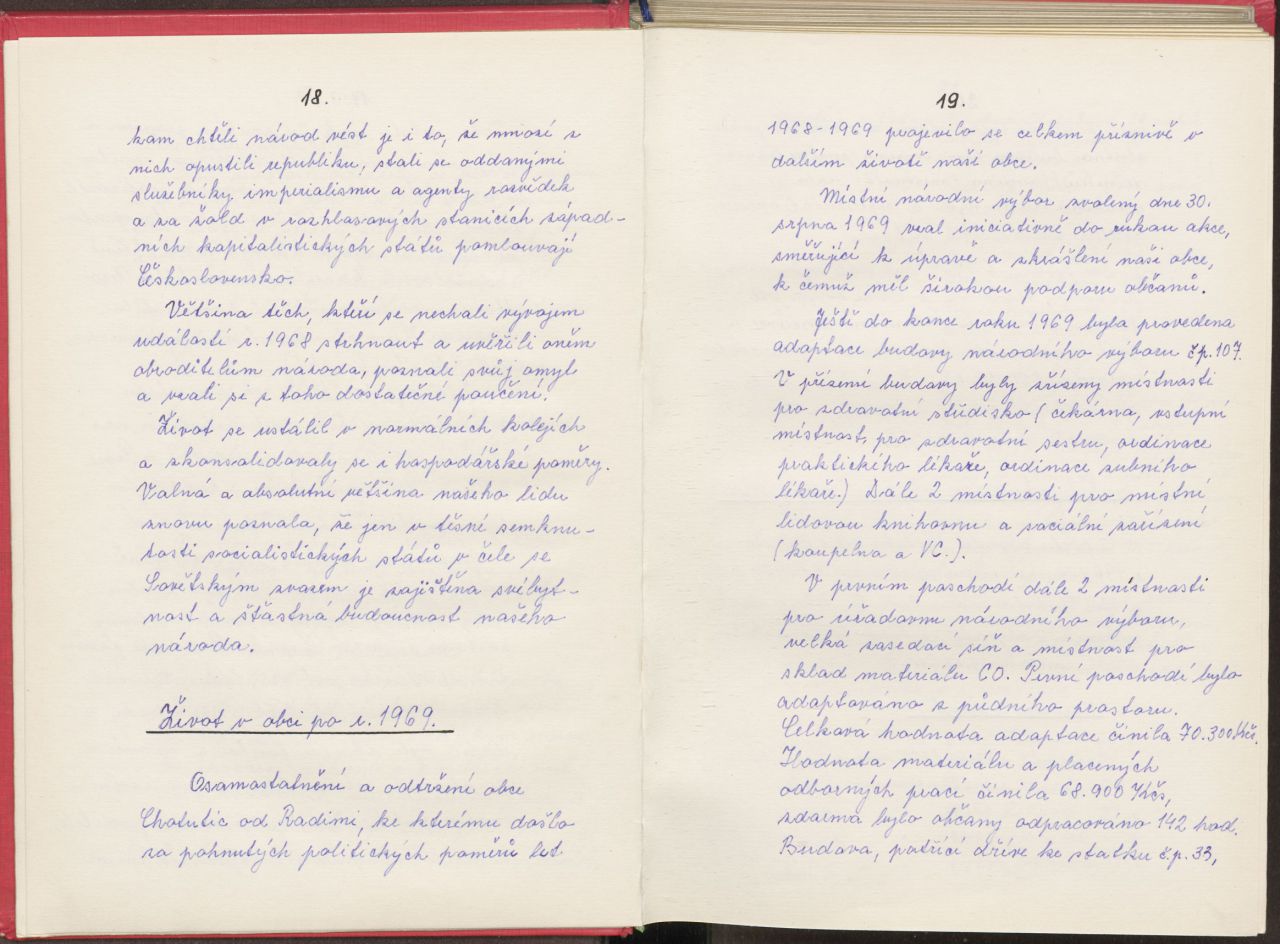 18.
kam chtěli návod vést je i to, že mnozí z
nich opustili republiku, stali se oddanými
služebníky imperialismu a agenty rozvědek
a za žold v rozhlasových stanicích západ-
ních kapitalistických států pomlouvají
Československo.
Většina těch, kteří se nechali vývojem
událostí r. 1968 strhnout a uvěřili oněm
obroditelům národa, poznali svůj omyl
a vzali si z toho dostatečné poučení.
Život se ustálil v normálních kolejích
a zkonsolidovaly se i hospodářské poměry.
Valná a absolutní většina našeho lidu
znovu poznala, že jen v těsné semknu-
tosti socialistických států v čele se
Sovětským svazem je zajištěna svébyt-
nost a šťastná budoucnost našeho
národa.
Život v obci po r. 1969.
Osamostatnění a odtržení obce
Chotutic od Radimi, ke kterému došlo
za pohnutých politických poměrů let
19.
1968-1969 projevilo se celkem příznivě v
dalším životě naší obce.
Místní národní výbor zvolený dne 30.
srpna 1969 vzal iniciativně do rukou akce,
směřující k úpravě a zkrášlení naší obce,
k čemuž měl širokou podporu občanů.
Ještě do konce roku 1969 byla provedena
adaptace budovy národního výboru čp. 107.
V přízemí budovy byly zřízeny místnosti
pro zdravotní středisko (čekárna, vstupní
místnost pro zdravotní sestru, ordinace
praktického lékaře, ordinace zubního
lékaře.) Dále 2 místnosti pro místní
lidovou knihovnu a sociální zařízení
(koupelna a VC.).
V prvním poschodí dále 2 místnosti
pro úřadovnu národního výboru,
velká zasedací síň a místnost pro
sklad materiálu CO. První poschodí bylo
adaptováno z půdního prostoru.
Celková hodnota adaptace činila 70.300 Kčs.
Hodnota materiálu a placených
odborných prací činila 68.900 Kčs,
zdarma bylo občany odpracováno 142 hod.
Budova, patřící dříve ke statku č.p. 33,